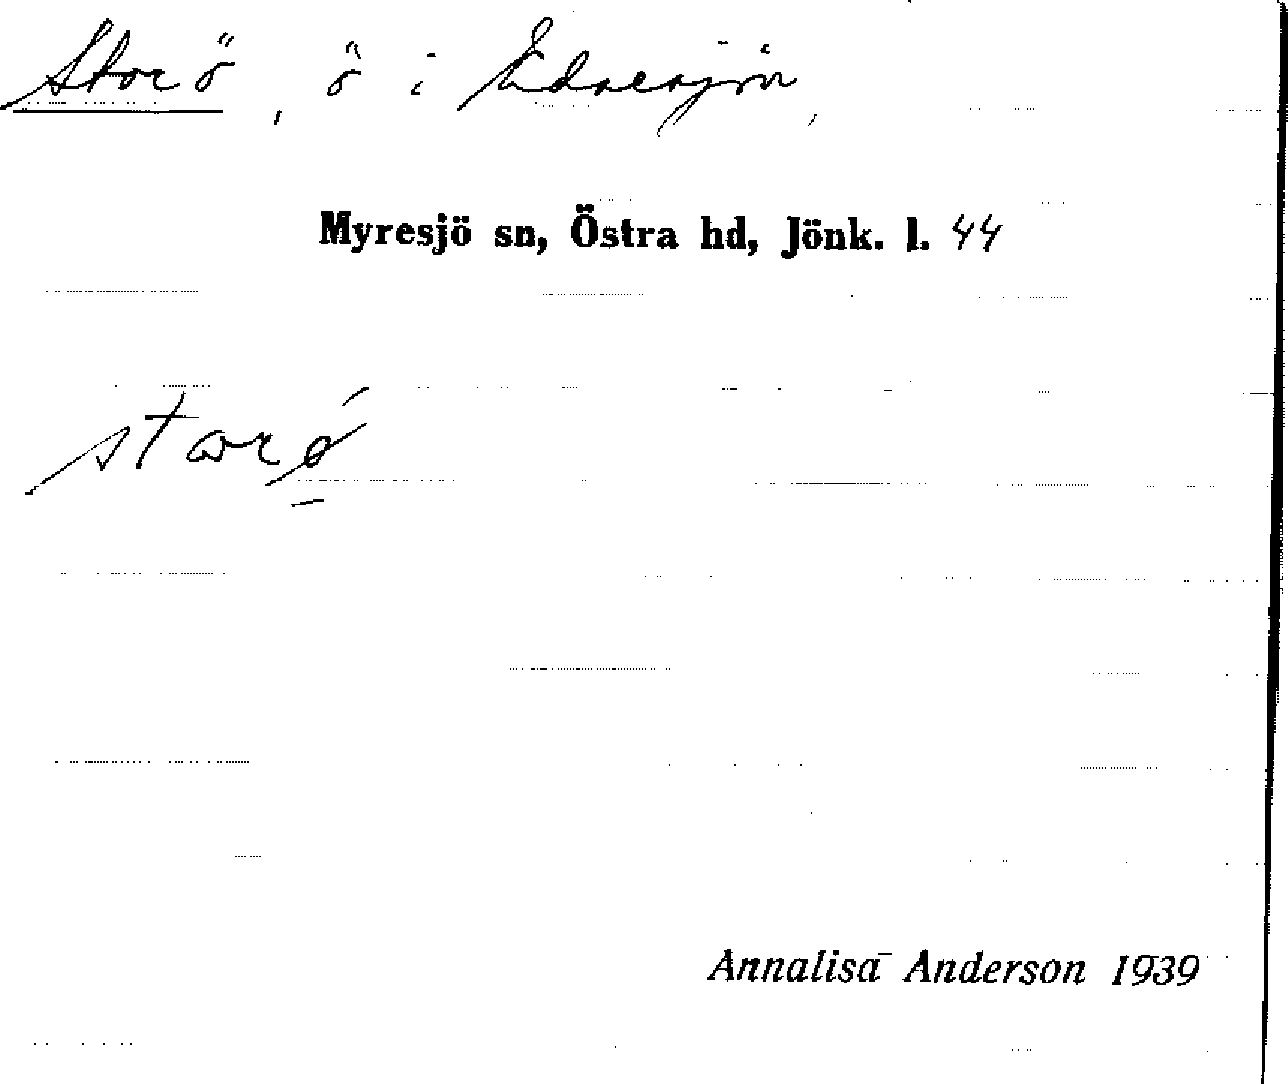 Storö, ö i Edaresjön,
Myresjö sn, Östra hd, Jönk. l. 44
Annalisa Anderson 1939